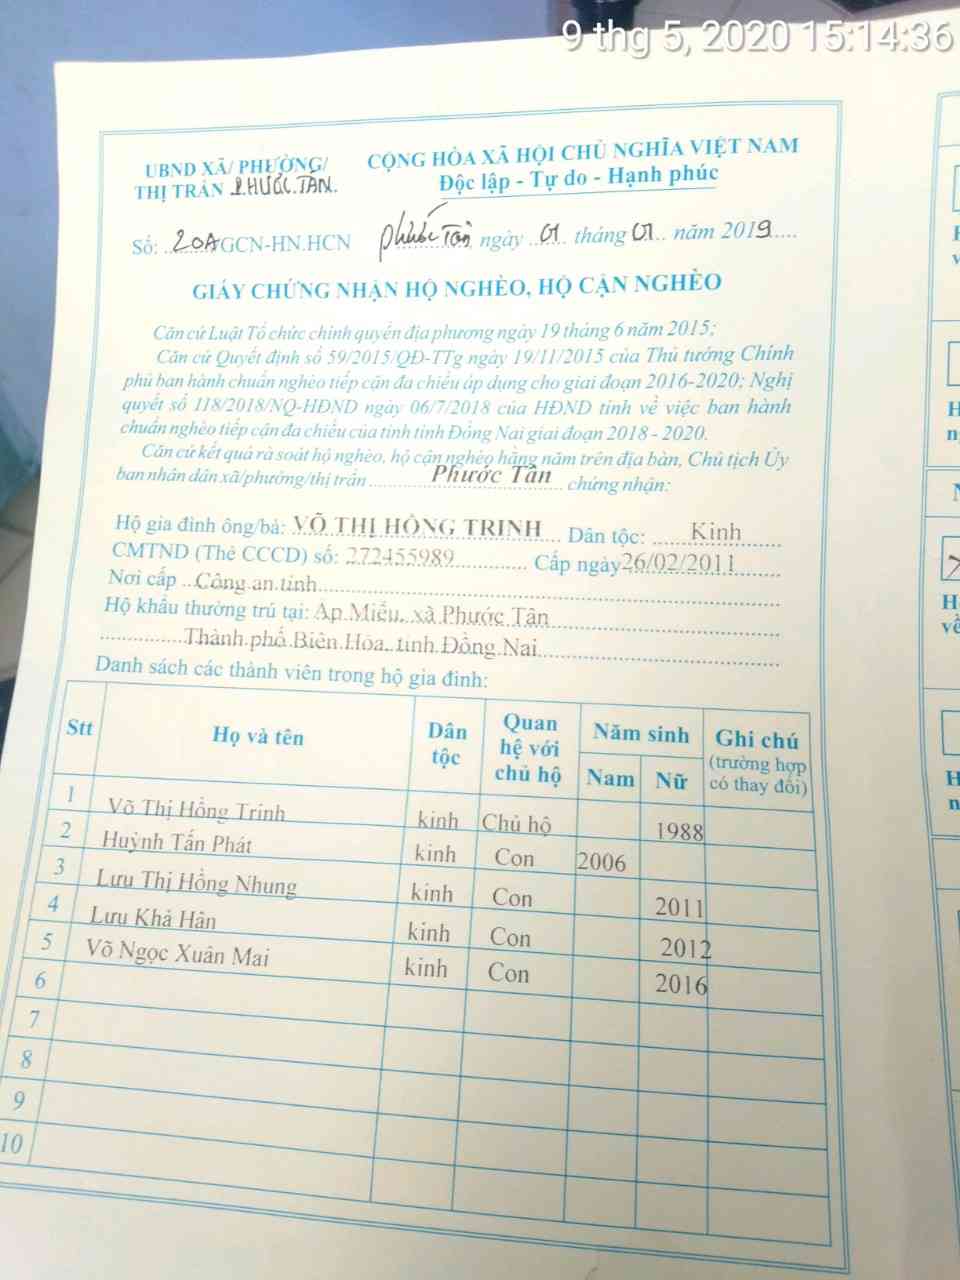 9 thg 5, 2020 15:14:36
UBND XÃ/ PHƯỜNG/
THỊ TRẤN PHƯỚC TÂN.
CỘNG HÒA XÃ HỘI CHỦ NGHĨA VIỆT NAM
Độc lập - Tự do - Hạnh phúc
Số: 20A GCN-HN.HCN
Phước Tân ngày 01 tháng 01 năm 2019
GIẤY CHỨNG NHẬN HỘ NGHÈO, HỘ CẬN NGHÈO
Căn cứ Luật Tổ chức chính quyền địa phương ngày 19 tháng 6 năm 2015;
Căn cứ Quyết định số 59/2015/QĐ-TTg ngày 19/11/2015 của Thủ tướng Chính
phủ ban hành chuẩn nghèo tiếp cận đa chiều áp dụng cho giai đoạn 2016-2020; Nghị
quyết số 118/2018/NQ-HĐND ngày 06/7/2018 của HĐND tỉnh về việc ban hành
chuẩn nghèo tiếp cận đa chiều của tỉnh tỉnh Đồng Nai giai đoạn 2018 - 2020.
Căn cứ kết quả rà soát hộ nghèo, hộ cận nghèo hằng năm trên địa bàn, Chủ tịch Ủy
ban nhân dân xã/phường/thị trấn Phước Tân chứng nhận:
Hộ gia đình ông/bà: VÕ THỊ HỒNG TRINH Dân tộc: Kinh
CMTND (Thẻ CCCD) số: 272455989 Cấp ngày 26/02/2011
Nơi cấp Công an tỉnh
Hộ khẩu thường trú tại: Ấp Miễu, xã Phước Tân
Thành phố Biên Hòa, tỉnh Đồng Nai
Danh sách các thành viên trong hộ gia đình:
Stt Họ và tên Dân tộc Quan hệ với chủ hộ Năm sinh Nam Nữ Ghi chú (trường hợp có thay đổi)
1 Võ Thị Hồng Trinh kinh Chủ hộ 1988
2 Huỳnh Tấn Phát kinh Con 2006
3 Lưu Thị Hồng Nhung kinh Con 2011
4 Lưu Khả Hân kinh Con 2012
5 Võ Ngọc Xuân Mai kinh Con 2016
6
7
8
9
10